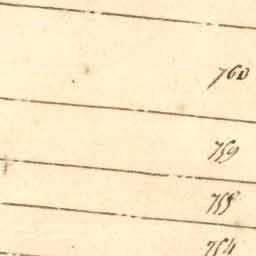 760
759
755
754